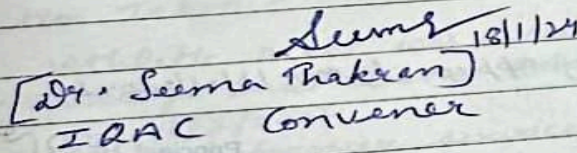 Seema 18/1/24
[Dr. Seema Thakran]
IQAC Convener